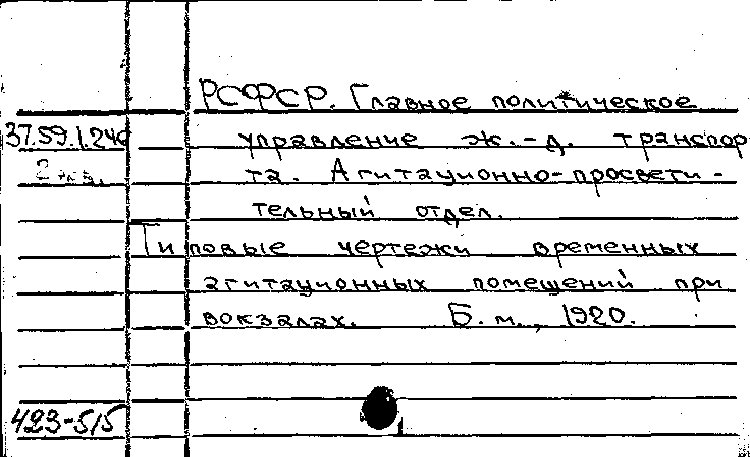 РСФСР. Главное политическое
37.59.1.240 управление ж.-д. транспор
2 экз. та. Агитационно-просвети-
тельный отдел.
Типовые чертежи временных
агитационных помещений при
вокзалах. Б.м., 1920.
423-515